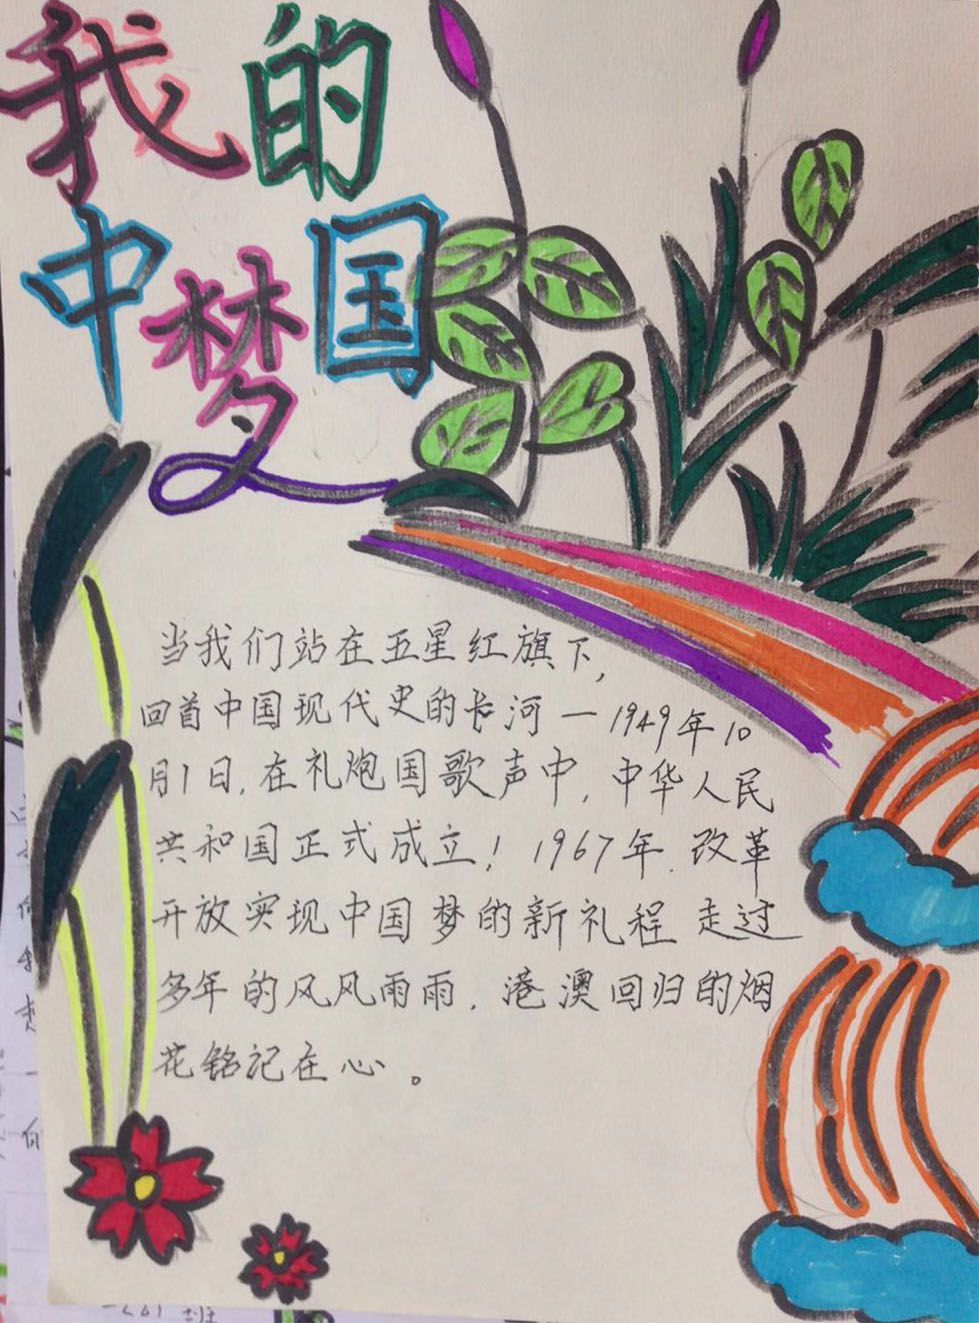 我的
中国
梦
当我们站在五星红旗下,
回首中国现代史的长河一1949年10
月1日,在礼炮国歌声中,中华人民
共和国正式成立!1967年.改革
开放实现中国梦的新礼程 走过
多年的风风雨雨.港澳回归的烟
花铭记在心。
班